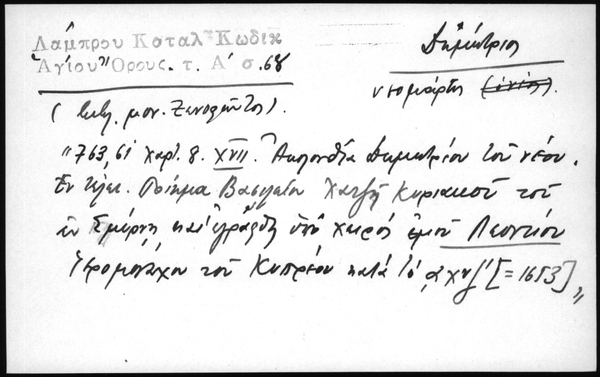 Λάμπρου Καταλ. Κωδίκ
Ἁγίου Ὄρους. τ. Α' σ. 68
Δημήτριος
νεομάρτυς
(βιβλ. μον. Ξενοφῶντος).
"763, 61 χαρτ. 8. XVII. Ἀκολουθία Δημητρίου τοῦ νέου.
Ἐν τέλει. Ποίημα Βασιλείου Χατζῆ Κυριακοῦ τοῦ
ἐν Σμύρνῃ καὶ ἐγράφθη ὑπὸ χειρὸς ἐμοῦ Λεοντίου
Ἱερομονάχου τοῦ Κυπρίου κατὰ τὸ ͵αχνζ' [=1653]"